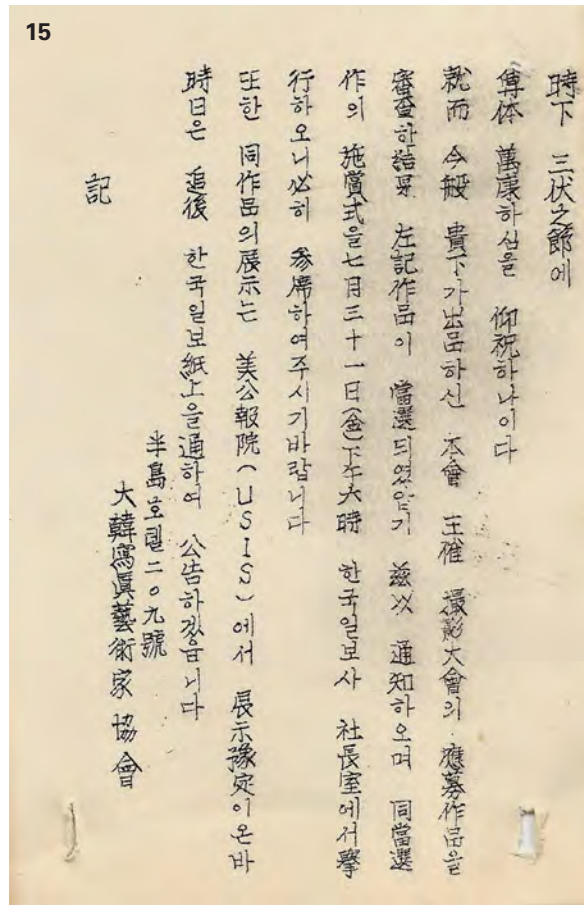 15
時下 三伏之節에
尊体 萬康하심을 仰祝하나이다
就而 今般 貴下가出品하신 本會 主催 撮影大會의 應募作品을
審査한結果 左記作品이 當選되였압기 玆以 通知하오며 同當選
作의 施賞式을七月三十一日(金)下午六時 한국일보사 社長室에서擧
行하오니必히 參席하여주시기바랍니다
또한 同作品의展示는 美公報院(USIS)에서 展示豫定이온바
時日은 追後 한국일보紙上을通하여 公告하겠읍니다
記
半島호텔二〇九號
大韓寫眞藝術家協會